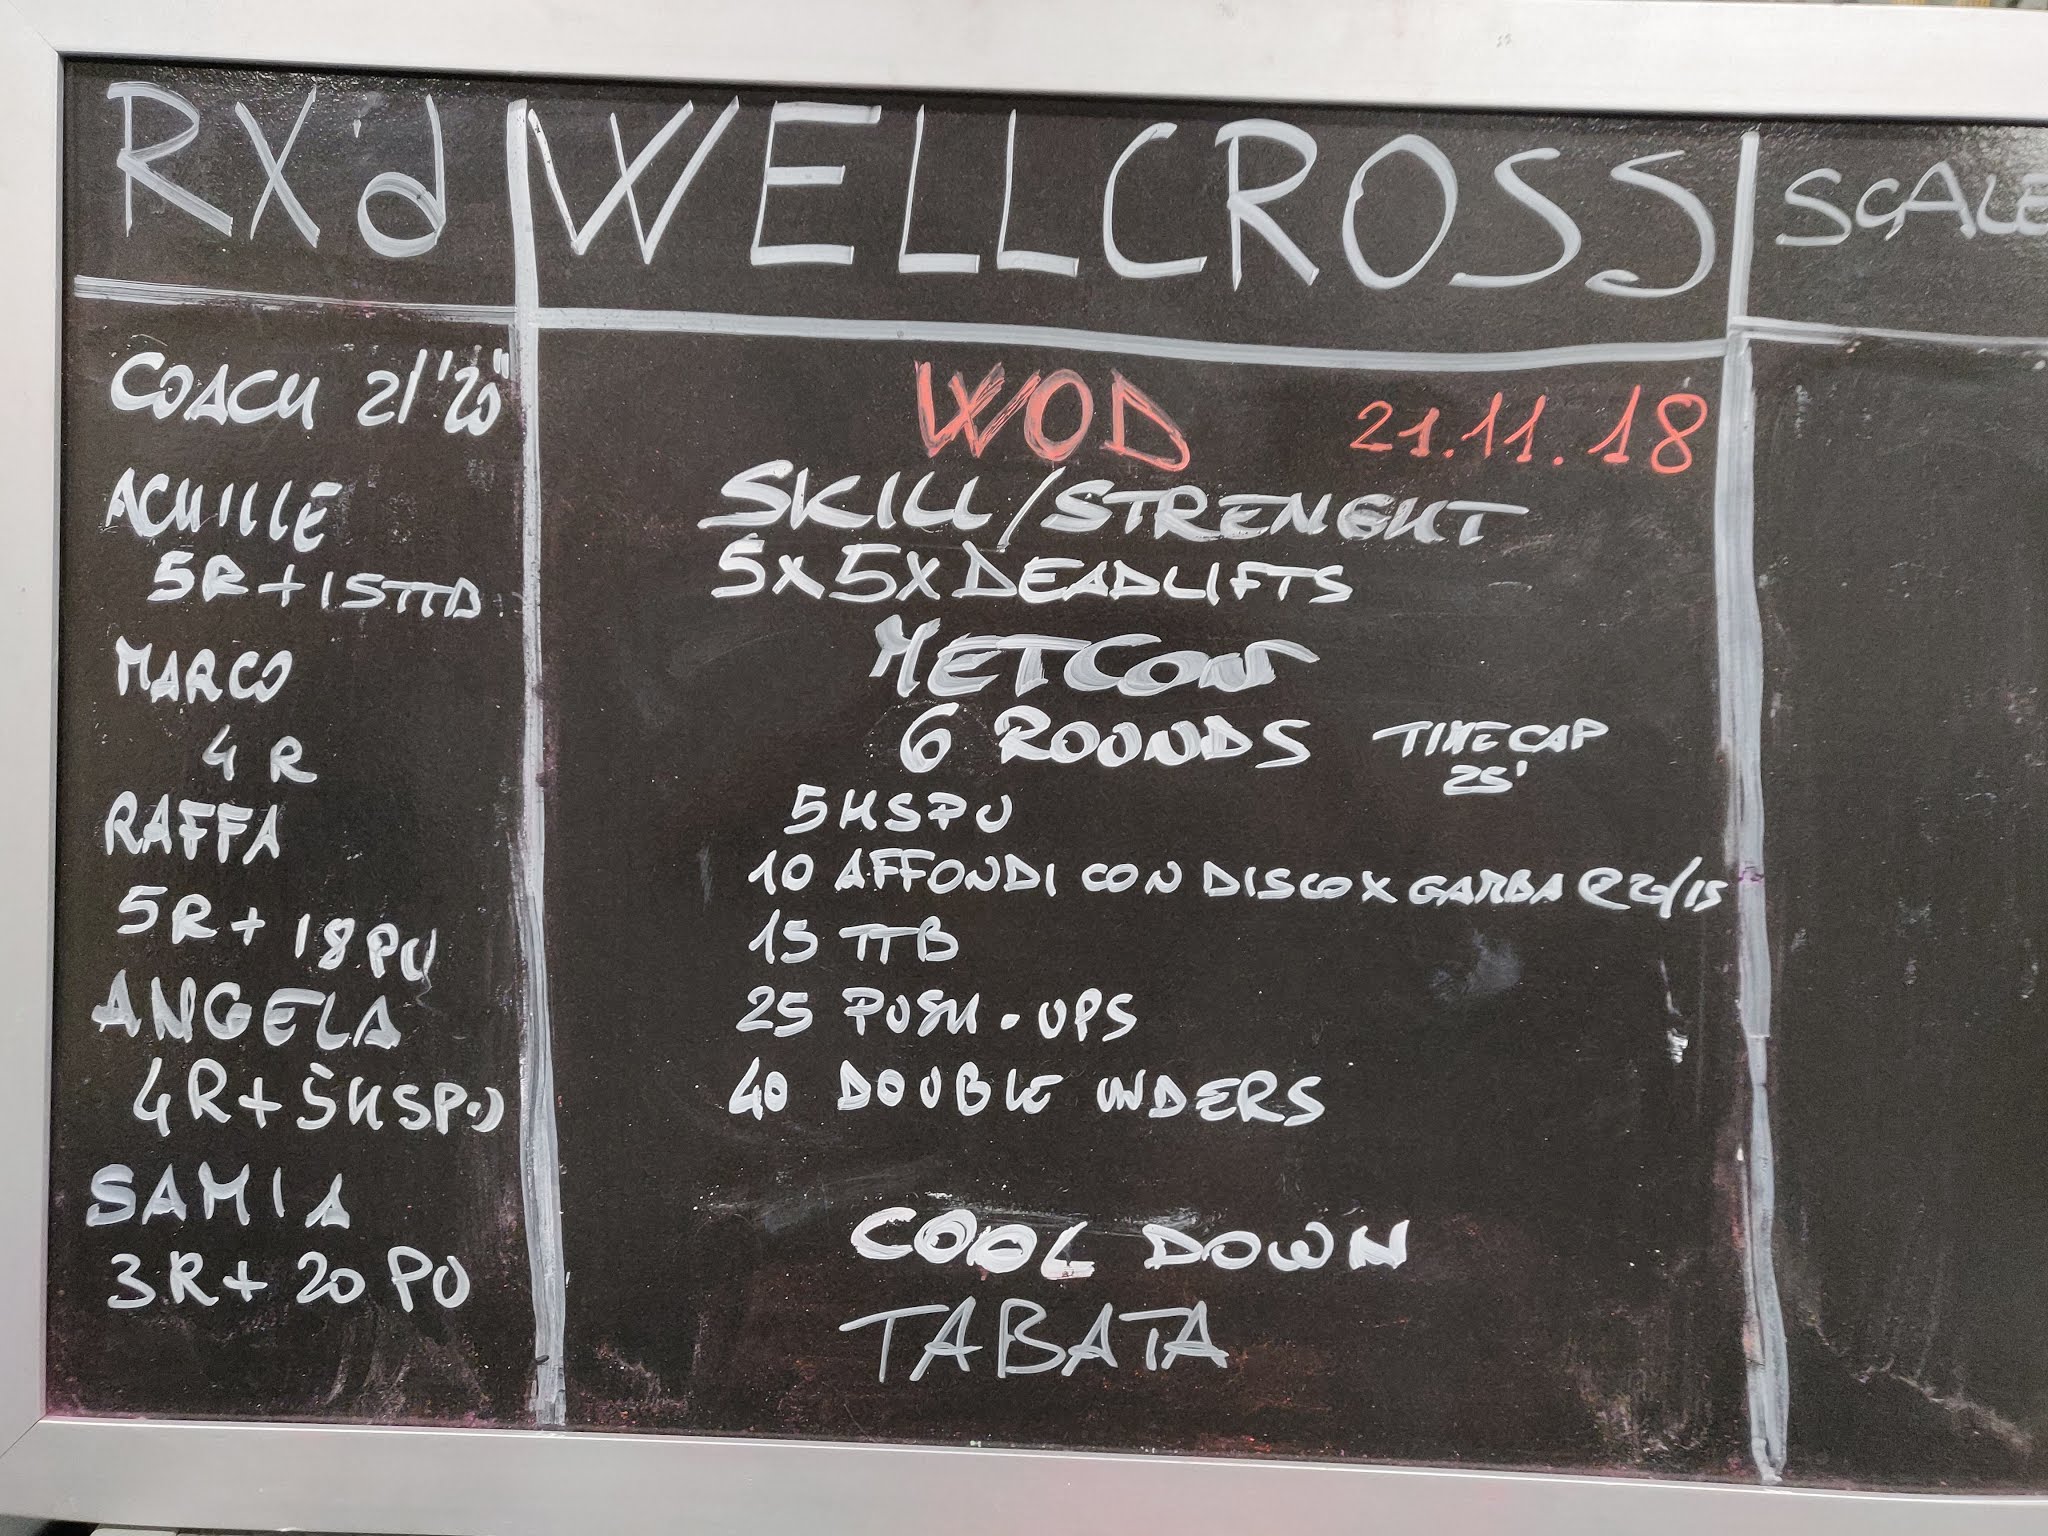 RX'd
COACH 21'20"
ACHILLE
5R + 15 TTB
MARCO
4 R
RAFFA
5R + 18 PU
ANGELA
4R + 5 HSPU
SAMIA
3R + 20 PU
WELLCROSS
WOD 21.11.18
SKILL/STRENGHT
5x5xDEADLIFTS
METCON
6 ROUNDS TIME CAP
25'
5 HSPU
10 AFFONDI CON DISCO x GAMBA
15 TTB
25 PUSH-UPS
40 DOUBLE UNDERS
COOL DOWN
TABATA
SCALE